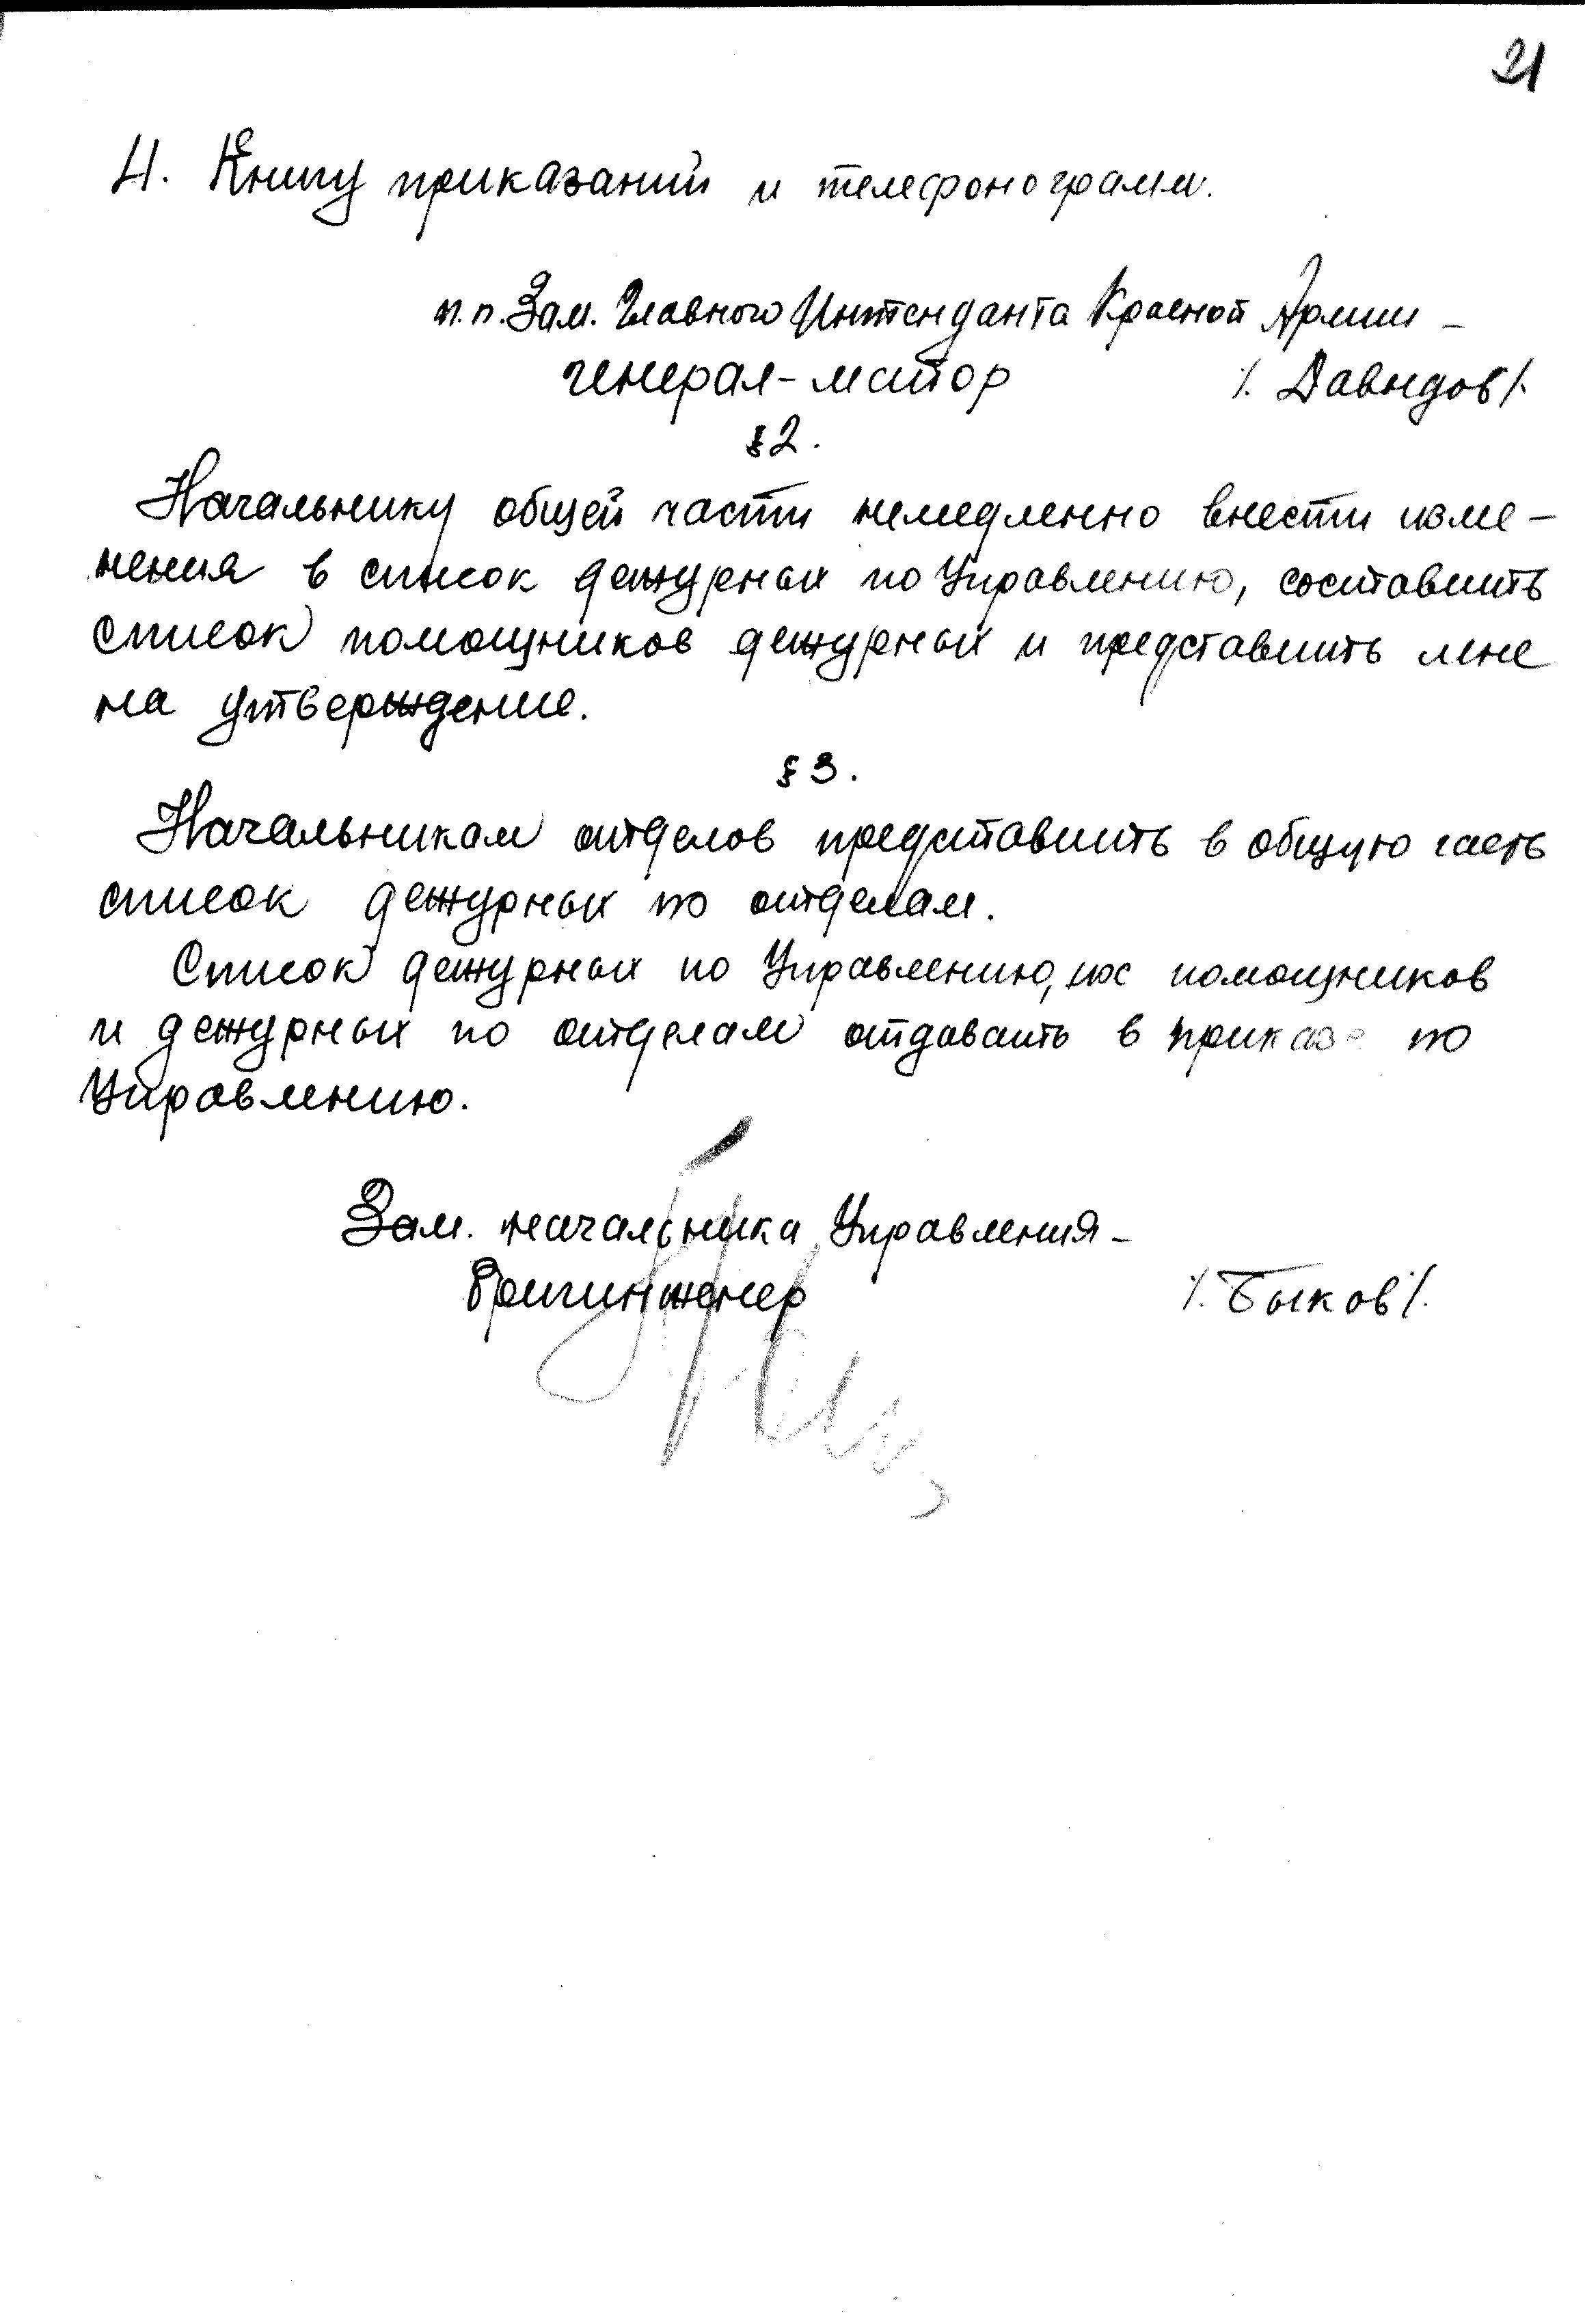 21
4. Книгу приказаний и телефонограмм.
п.п. Зам. Главного Интенданта Красной Армии –
генерал-майор /. Давыдов/.
§ 2.
Начальнику общей части немедленно внести изме-
нения в список дежурных по Управлению, составить
список помощников дежурных и представить мне
на утверждение.
§ 3.
Начальникам отделов представить в общую часть
список дежурных по отделам.
Список дежурных по Управлению, их помощников
и дежурных по отделам отдавать в приказе по
Управлению.
Зам. начальника Управления –
Бригинженер /. Быков/.